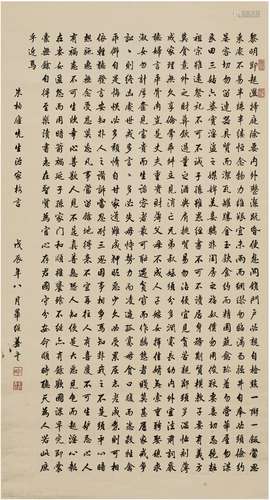 黎明即起灑掃庭除要內外整潔既昏便息關鎖門戶必親自檢點一粥一飯當思
來處不易半絲半縷恆念物力維艱宜未雨而綢繆毋臨渴而掘井自奉必須儉約
宴客切勿留連器具質而潔瓦缶勝金玉飲食約而精園蔬愈珍饈勿營華屋勿謀
良田三姑六婆實淫盜之媒婢美妾嬌非閨房之福奴僕勿用俊美妻妾切忌艷粧
祖宗雖遠祭祀不可不誠子孫雖愚經書不可不讀居身務期質樸教子要有義方
勿貪意外之財莫飲過量之酒與肩挑貿易勿佔便宜見貧苦親鄰須多溫恤刻薄
成家理無久享倫常乖舛立見消亡兄弟叔姪須分多潤寡長幼內外宜法肅辭嚴
聽婦言乖骨肉豈是丈夫重資財薄父母不成人子嫁女擇佳婿毋索重聘娶媳求
淑女勿計厚奩見富貴而生諂容者最可恥遇貧窮而作驕態者賤莫甚居家戒爭
訟訟則終凶處世戒多言言多必失毋恃勢力而凌逼孤寡勿貪口腹而恣殺牲禽
乖僻自是悔誤必多頹惰自甘家道難成狎暱惡少久必受其累屈志老成急則可相
依輕聽發言安知非人之譖愬當忍耐三思因事相爭焉知非我之不是須平心再
想施惠勿念受恩莫忘凡事當留餘地得意不宜再往人有喜慶不可生妒忌心人
有禍患不可生喜幸心善欲人見不是真善惡恐人知便是大惡見色而起淫心報
在妻女匿怨而用暗箭禍延子孫家門和順雖饔飧不繼亦有餘歡國課早完即囊
橐無餘自得至樂讀書志在聖賢為官心存君國守分安命順時聽天為人若此庶
乎近焉
朱柏廬先生治家格言 戊辰年八月華